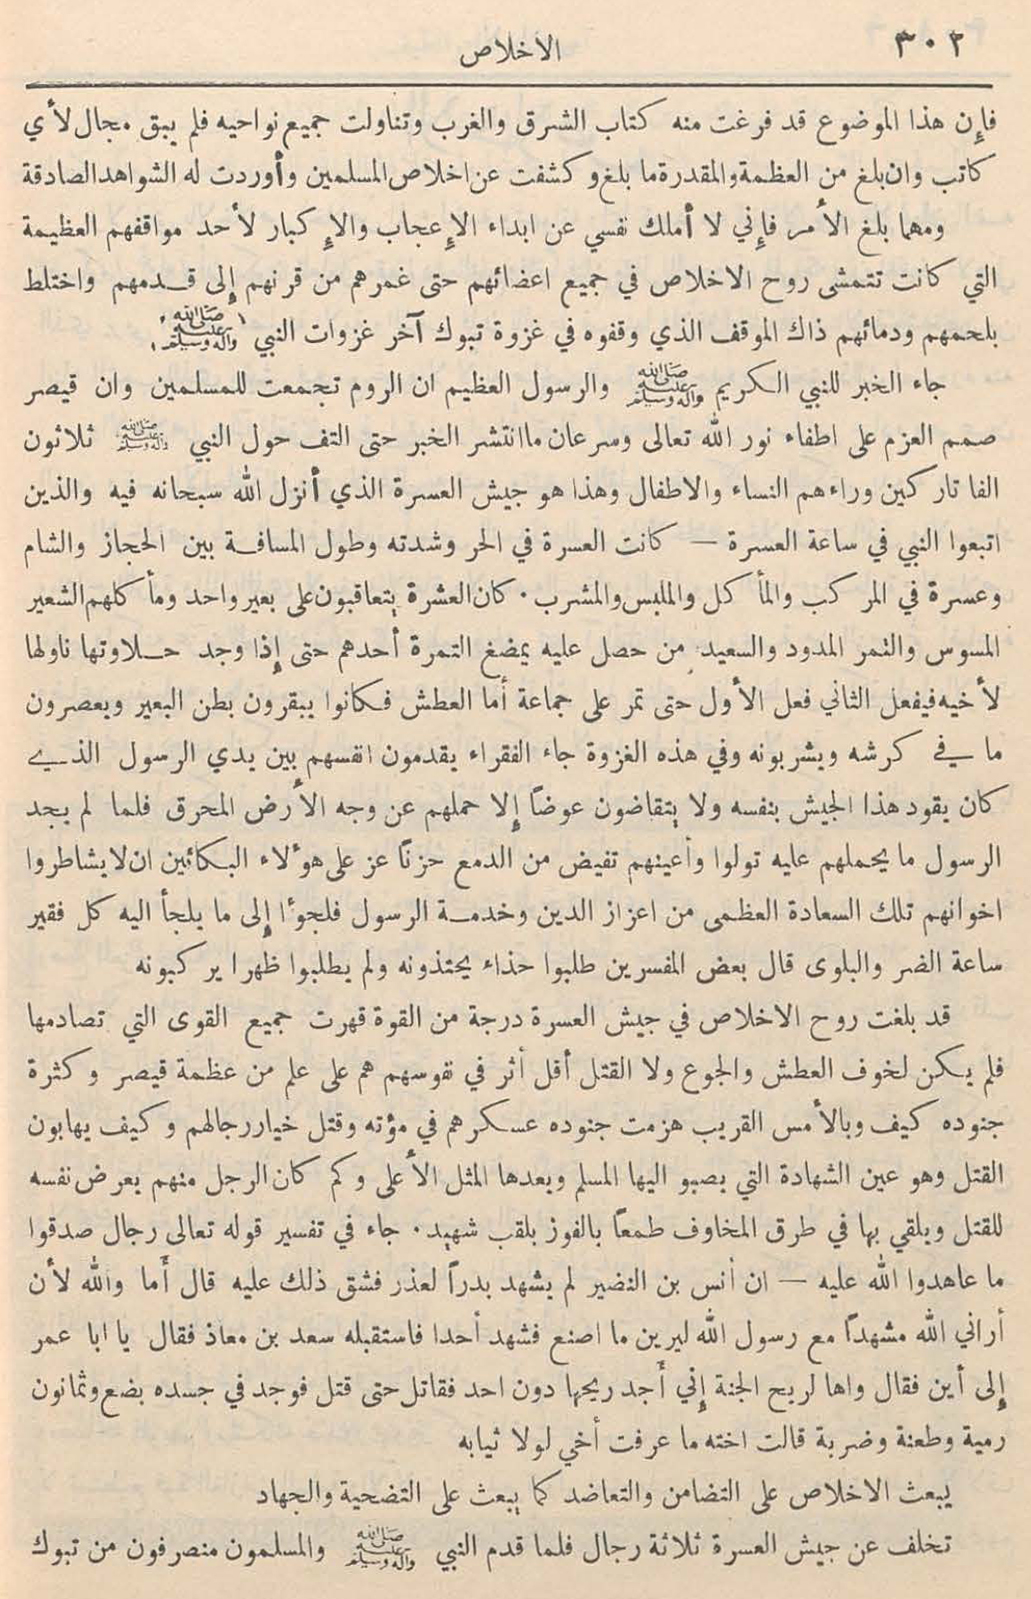 ٣٠٢
الاخلاص
فإن هذا الموضوع قد فرغت منه كتاب الشرق والغرب وتناولت جميع نواحيه فلم يبق مجال لأي
كاتب وان بلغ من العظمة والمقدرة ما بلغ و كشفت عن اخلاص المسلمين وأوردت له الشواهد الصادقة
ومهما بلغ الأمر فإني لا أملك نفسي عن ابداء الإعجاب والإكبار لأحد مواقفهم العظيمة
التي كانت تتمشى روح الاخلاص في جميع اعضائهم حتى غمرهم من قرنهم إلى قدمهم واختلط
بلحمهم ودمائهم ذاك الموقف الذي وقفوه في غزوة تبوك آخر غزوات النبي ﷺ
جاء الخبر للنبي الكريم ﷺ والرسول العظيم ان الروم تجمعت للمسلمين وان قيصر
صمم العزم على اطفاء نور الله تعالى وسرعان ما انتشر الخبر حتى التف حول النبي ﷺ ثلاثون
الفا تاركين وراءهم النساء والاطفال وهذا هو جيش العسرة الذي أنزل الله سبحانه فيه والذين
اتبعوا النبي في ساعة العسرة — كانت العسرة في الحر وشدته وطول المسافة بين الحجاز والشام
وعسرة في المركب والمأكل والملبس والمشرب. كان العشرة يتعاقبون على بعير واحد ومأكلهم الشعير
المسوس والتمر المدود والسعيد من حصل عليه يمضغ التمرة أحدهم حتى إذا وجد حلاوتها ناولها
لأخيه فيفعل الثاني فعل الأول حتى تمر على جماعة أما العطش فكانوا يبقرون بطن البعير ويعصرون
ما في كرشه ويشربونه وفي هذه الغزوة جاء الفقراء يقدمون انفسهم بين يدي الرسول الذي
كان يقود هذا الجيش بنفسه ولا يتقاضون عوضاً إلا حملهم عن وجه الأرض المحرق فلما لم يجد
الرسول ما يحملهم عليه تولوا وأعينهم تفيض من الدمع حزناً عز على هؤلاء البكائين ان لا يشاطروا
اخوانهم تلك السعادة العظمى من اعزاز الدين وخدمة الرسول فلجوءا إلى ما يلجأ اليه كل فقير
ساعة الضر والبلوى قال بعض المفسرين طلبوا حذاء يحتذونه ولم يطلبوا ظهرا يركبونه
قد بلغت روح الاخلاص في جيش العسرة درجة من القوة قهرت جميع القوى التي تصادمها
فلم يكن لخوف العطش والجوع ولا القتل أقل أثر في نفوسهم هم على علم من عظمة قيصر وكثرة
جنوده كيف وبالأمس القريب هزمت جنوده عسكرهم في مؤته وقتل خيار رجالهم وكيف يهابون
القتل وهو عين الشهادة التي يصبو اليها المسلم ويعدها المثل الأعلى وكم كان الرجل منهم يعرض نفسه
للقتل ويلقي بها في طرق المخاوف طمعاً بالفوز بلقب شهيد. جاء في تفسير قوله تعالى رجال صدقوا
ما عاهدوا الله عليه — ان أنس بن النضير لم يشهد بدراً لعذر فشق ذلك عليه قال أما والله لأن
أراني الله مشهداً مع رسول الله ليرين ما اصنع فشهد أحدا فاستقبله سعد بن معاذ فقال يا ابا عمر
إلى أين فقال واها لريح الجنة إني أجد ريحها دون احد فقاتل حتى قتل فوجد في جسده بضع وثمانون
رمية وطعنة وضربة قالت اخته ما عرفت أخي لولا ثيابه
يبعث الاخلاص على التضامن والتعاضد كما يبعث على التضحية والجهاد
تخلف عن جيش العسرة ثلاثة رجال فلما قدم النبي ﷺ والمسلمون منصرفون من تبوك